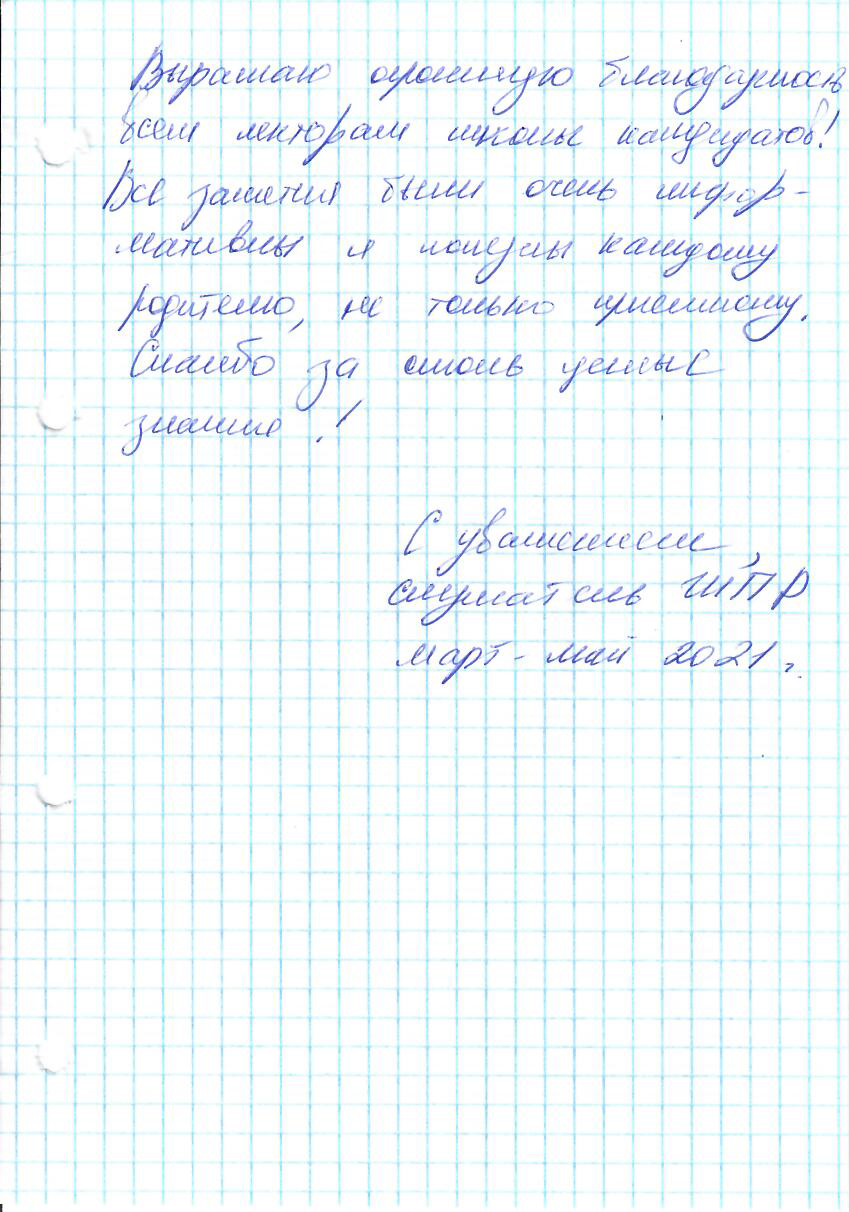 Выражаю огромную благодарность
всем лекторам школы кандидатов!
Все занятия были очень инфор-
мативны и полезны каждому
родителю, не только приемному.
Спасибо за столь ценные
знания!
С уважением,
слушатель ШПР
март-май 2021г.